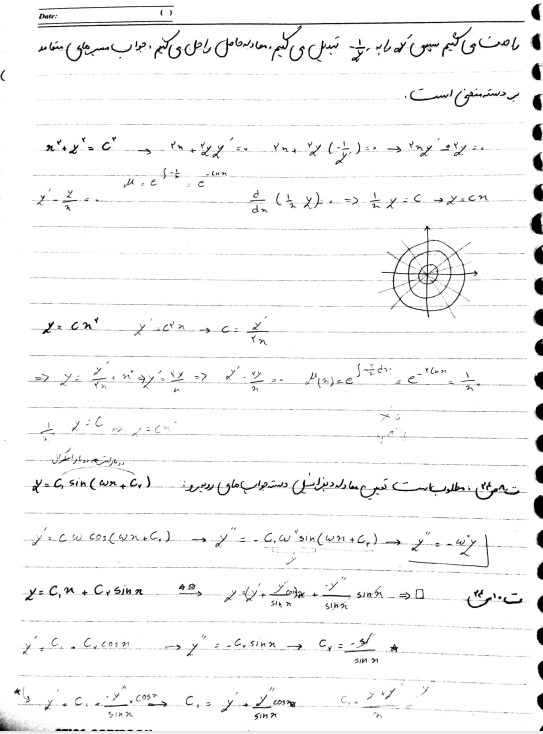 Date: ( )
راحت می کنیم سپس y' را به -1/y' تبدیل می کنیم. معادله حاصل را حل می کنیم. جواب مسیرهای متعامد
بر دسته منحنی است.
x² + y² = C² → ۲x + ۲yy' = ۰ ۲x + ۲y(-1/y') = ۰ → ۲xy' - ۲y = ۰
y' - y/x = ۰ μ = e^∫-1/x = e^-Lnx d/dx (1/x y) = ۰ => 1/x y = C → y = cx
y = cx² y' = c۲x → c = y'/۲x
=> y = y'/۲x · x² → y' = ۲y/x => y' - ۲y/x = ۰ μ(x) = e^∫-۲/x dx = e^-۲Lnx = 1/x²
y = C₁ sin(ωx + C₂) مطلوب است تعیین معادله دیفرانسیل دسته جواب های روبرو:
y' = cω cos(ωx + C₂) → y'' = -C₁ω² sin(ωx + C₂) → y'' = -ω²y
y = C₁x + C₂ sin x → y = (y' + y''cosx/sin x)x + -y''/sin x sin x => □
y' = C₁ + C₂ cosx → y'' = -C₂ sin x → C₂ = -y''/sin x *
* y' = C₁ + -y''/sin x · cosx → C₁ = y' + y''/sin x cosx